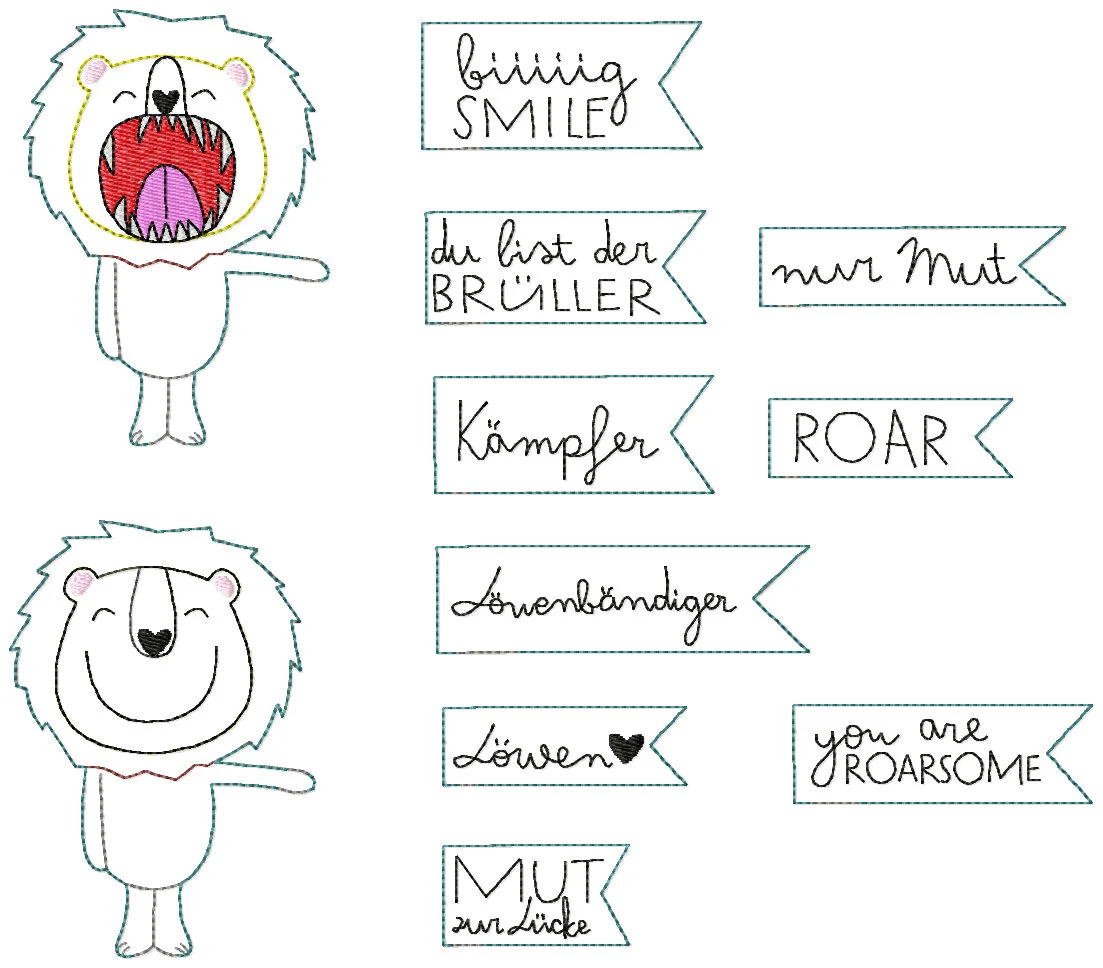 biiiiig
SMILE
du bist der
BRÜLLER
nur Mut
Kämpfer
ROAR
Löwenbändiger
Löwen♥
you are
ROARSOME
MUT
zur Lücke